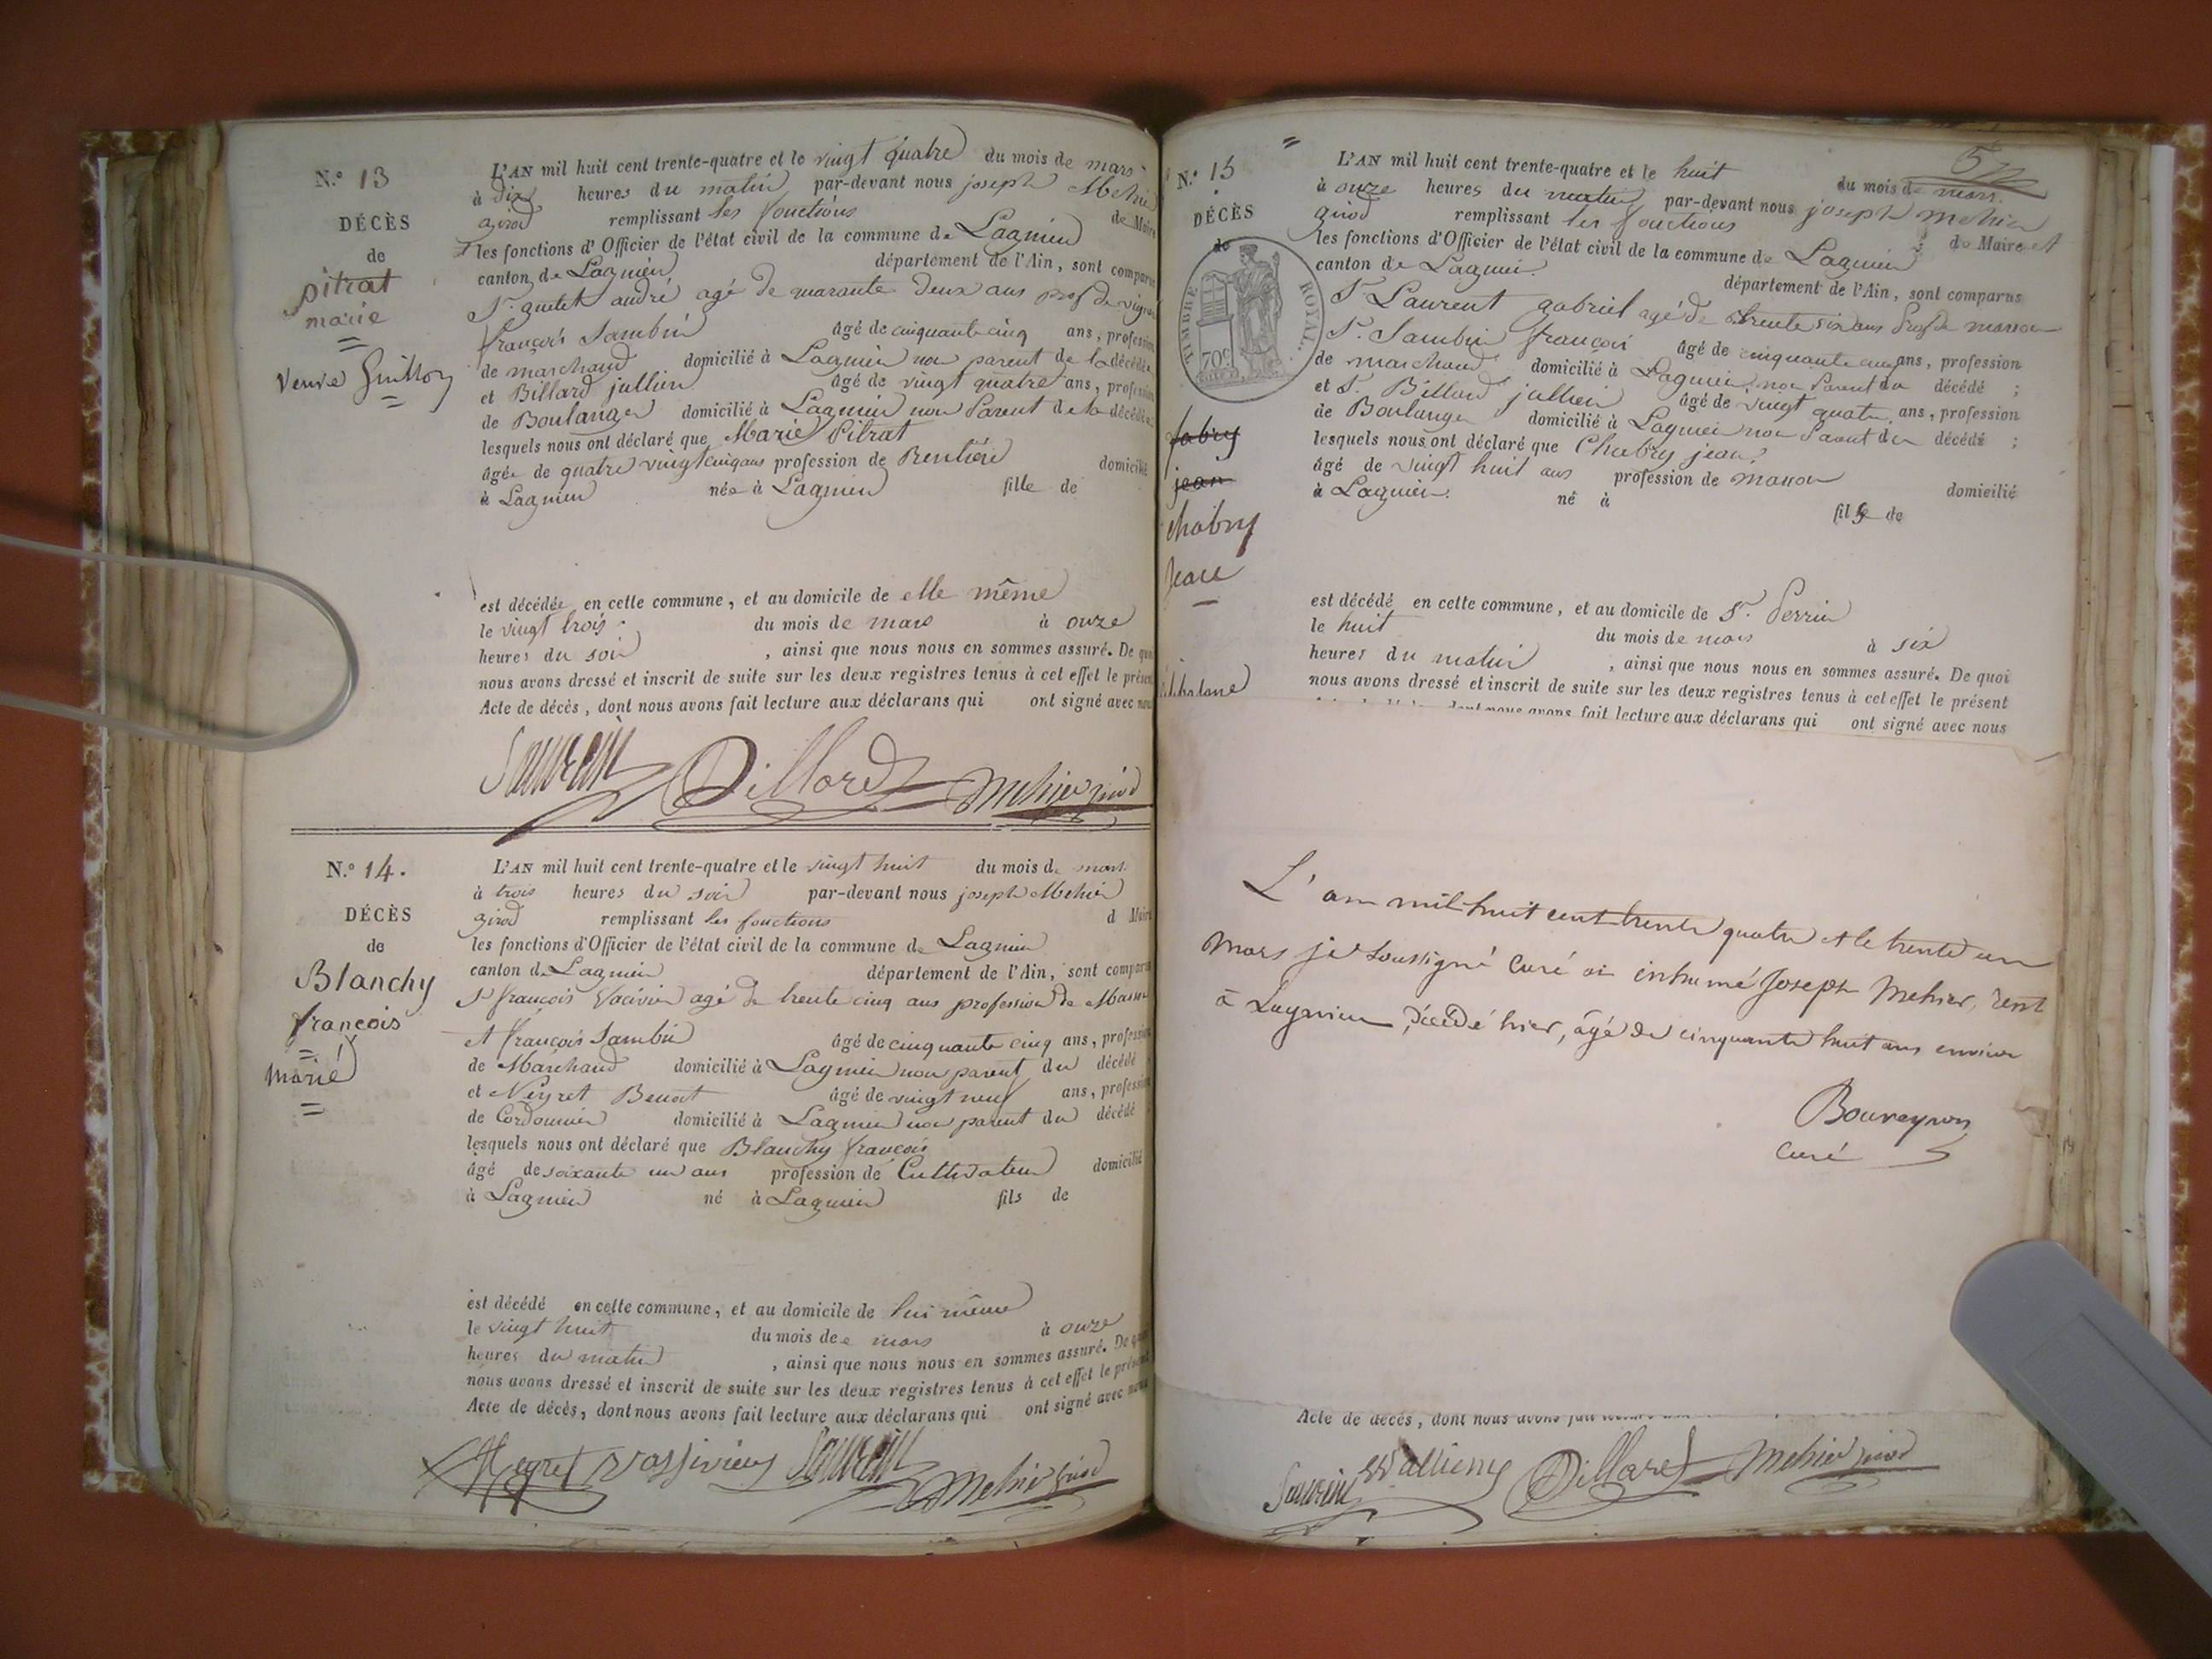 N.° 13
DÉCÈS
de
pitrat
marie
=
veuve Guillon
=
L'AN mil huit cent trente-quatre et le vingt quatre du mois de mars
à dix heures du matin par-devant nous joseph Mehier
girod remplissant les fonctions de Maire
les fonctions d'Officier de l'état civil de la commune de Lagnieu
canton de Lagnieu département de l'Ain, sont comparus
Sr. andré agé de quarante deux ans prof de
françois Sambin âgé de cinquante cinq ans, profession
de marchand domicilié à Lagnieu non parent de la décédée
et Billard jullien âgé de vingt quatre ans, profession
de Boulanger domicilié à Lagnieu non Parent de la décédée
lesquels nous ont déclaré que Marie Pitrat
âgée de quatre vingt cinq ans profession de Rentière domicilié
à Lagnieu née à Lagnieu fille de
est décédée en cette commune, et au domicile de elle même
le vingt trois du mois de mars à onze
heures du soir, ainsi que nous nous en sommes assuré. De quoi
nous avons dressé et inscrit de suite sur les deux registres tenus à cet effet le présent
Acte de décès, dont nous avons fait lecture aux déclarans qui ont signé avec nous
Billard Mehier girod
N.° 14.
DÉCÈS
de
Blanchy
françois
=
marié
=
L'AN mil huit cent trente-quatre et le vingt huit du mois de mars
à trois heures du soir par-devant nous joseph Mehier
girod remplissant les fonctions d Maire
les fonctions d'Officier de l'état civil de la commune de Lagnieu
canton de Lagnieu département de l'Ain, sont comparus
Sr françois agé de trente cinq ans profession de
et françois Sambin âgé de cinquante cinq ans, profession
de Marchand domicilié à Lagnieu non parent du décédé
et Neyret Benoit âgé de vingt neuf ans, profession
de Cordonnier domicilié à Lagnieu non parent du décédé
lesquels nous ont déclaré que Blanchy françois
âgé de soixante un ans profession de Cultivateur domicilié
à Lagnieu né à Lagnieu fils de
est décédé en cette commune, et au domicile de lui même
le vingt huit du mois de mars à onze
heures du matin, ainsi que nous nous en sommes assuré. De quoi
nous avons dressé et inscrit de suite sur les deux registres tenus à cet effet le présent
Acte de décès, dont nous avons fait lecture aux déclarans qui ont signé avec nous
Neyret Mehier girod
N.° 15
DÉCÈS
de
TIMBRE ROYAL
70c
fabry
jean
chabry
jean
L'AN mil huit cent trente-quatre et le huit du mois de mars
à onze heures du matin par-devant nous joseph Mehier
girod remplissant les fonctions de Maire et
les fonctions d'Officier de l'état civil de la commune de Lagnieu
canton de Lagnieu département de l'Ain, sont comparus
Sr Laurent gabriel agé de trente six ans Prof de masson
Sr. Sambin françois âgé de cinquante cinq ans, profession
de marchand domicilié à Lagnieu non Parent du décédé ;
et Sr. Billard jullien âgé de vingt quatre ans, profession
de Boulanger domicilié à Lagnieu non Parent du décédé ;
lesquels nous ont déclaré que Chabry jean
âgé de vingt huit ans profession de masson domicilié
à Lagnieu né à fils de
est décédé en cette commune, et au domicile de Sr. Perrin
le huit du mois de mars à six
heures du matin, ainsi que nous nous en sommes assuré. De quoi
nous avons dressé et inscrit de suite sur les deux registres tenus à cet effet le présent
dont nous avons fait lecture aux déclarans qui ont signé avec nous
L'an mil huit cent trente quatre et le trente un
Mars je soussigné curé ai inhumé Joseph Mehier, rent
à Lagnieu, décédé hier, âgé de cinquante huit ans environ
Bouveyron
Curé
Acte de décès, dont nous avons fait
Billard Mehier girod